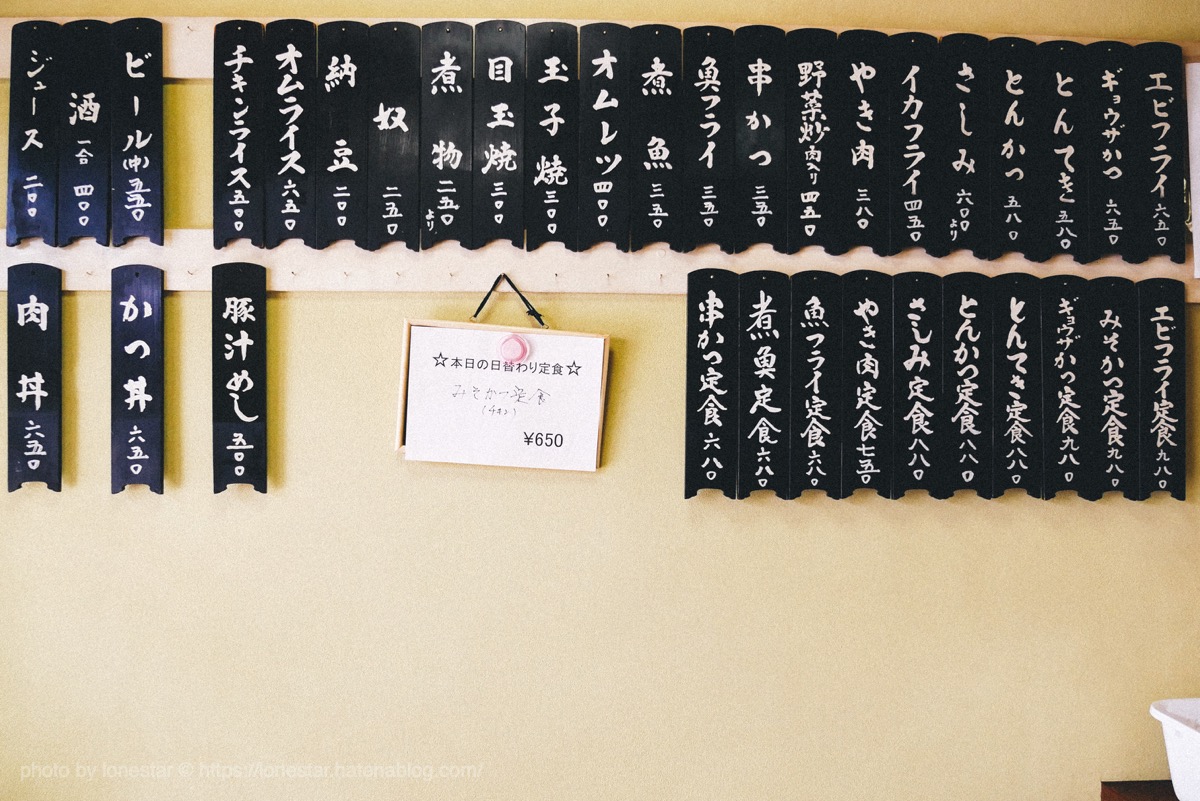 エビフライ 六五〇
ギョウザかつ 六五〇
とんてき 五八〇
とんかつ 五八〇
さしみ 六〇〇より
イカフライ 四五〇
やき肉 三八〇
野菜炒肉入り 四五〇
串かつ 三五〇
魚フライ 三五〇
煮魚 三五〇
オムレツ 四〇〇
玉子焼 三〇〇
目玉焼 三〇〇
煮物 二五〇より
奴 二五〇
納豆 二〇〇
オムライス 六五〇
チキンライス 五五〇
ビール(中) 五五〇
酒 一合 四〇〇
ジュース 二〇〇
エビフライ定食 九八〇
みそかつ定食 九八〇
ギョウザかつ定食 九八〇
とんてき定食 八八〇
とんかつ定食 八八〇
さしみ定食 八八〇
やき肉定食 七五〇
魚フライ定食 六八〇
煮魚定食 六八〇
串かつ定食 六八〇
☆本日の日替わり定食☆
みそかつ定食
(チキン)
¥650
豚汁めし 五〇〇
かつ丼 六五〇
肉丼 六五〇
photo by lonestar © https://lonestar.hatenablog.com/